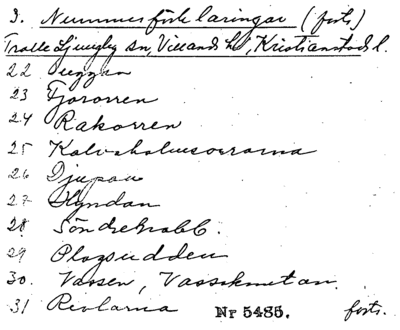 3. Nummerförklaringar (forts)
Trolle Ljungby sn, Villands hd, Kristianstads l.
22 Tuggen
23 Tjororren
24 Rakorren
25 Kalvaholmsorrarna
26 Djupau
27 Flyndan
28 Söndrekrabb.
29 Plogsudden
30. Vassen, Vasskmetan
31 Revlarna Nr 5485. forts.